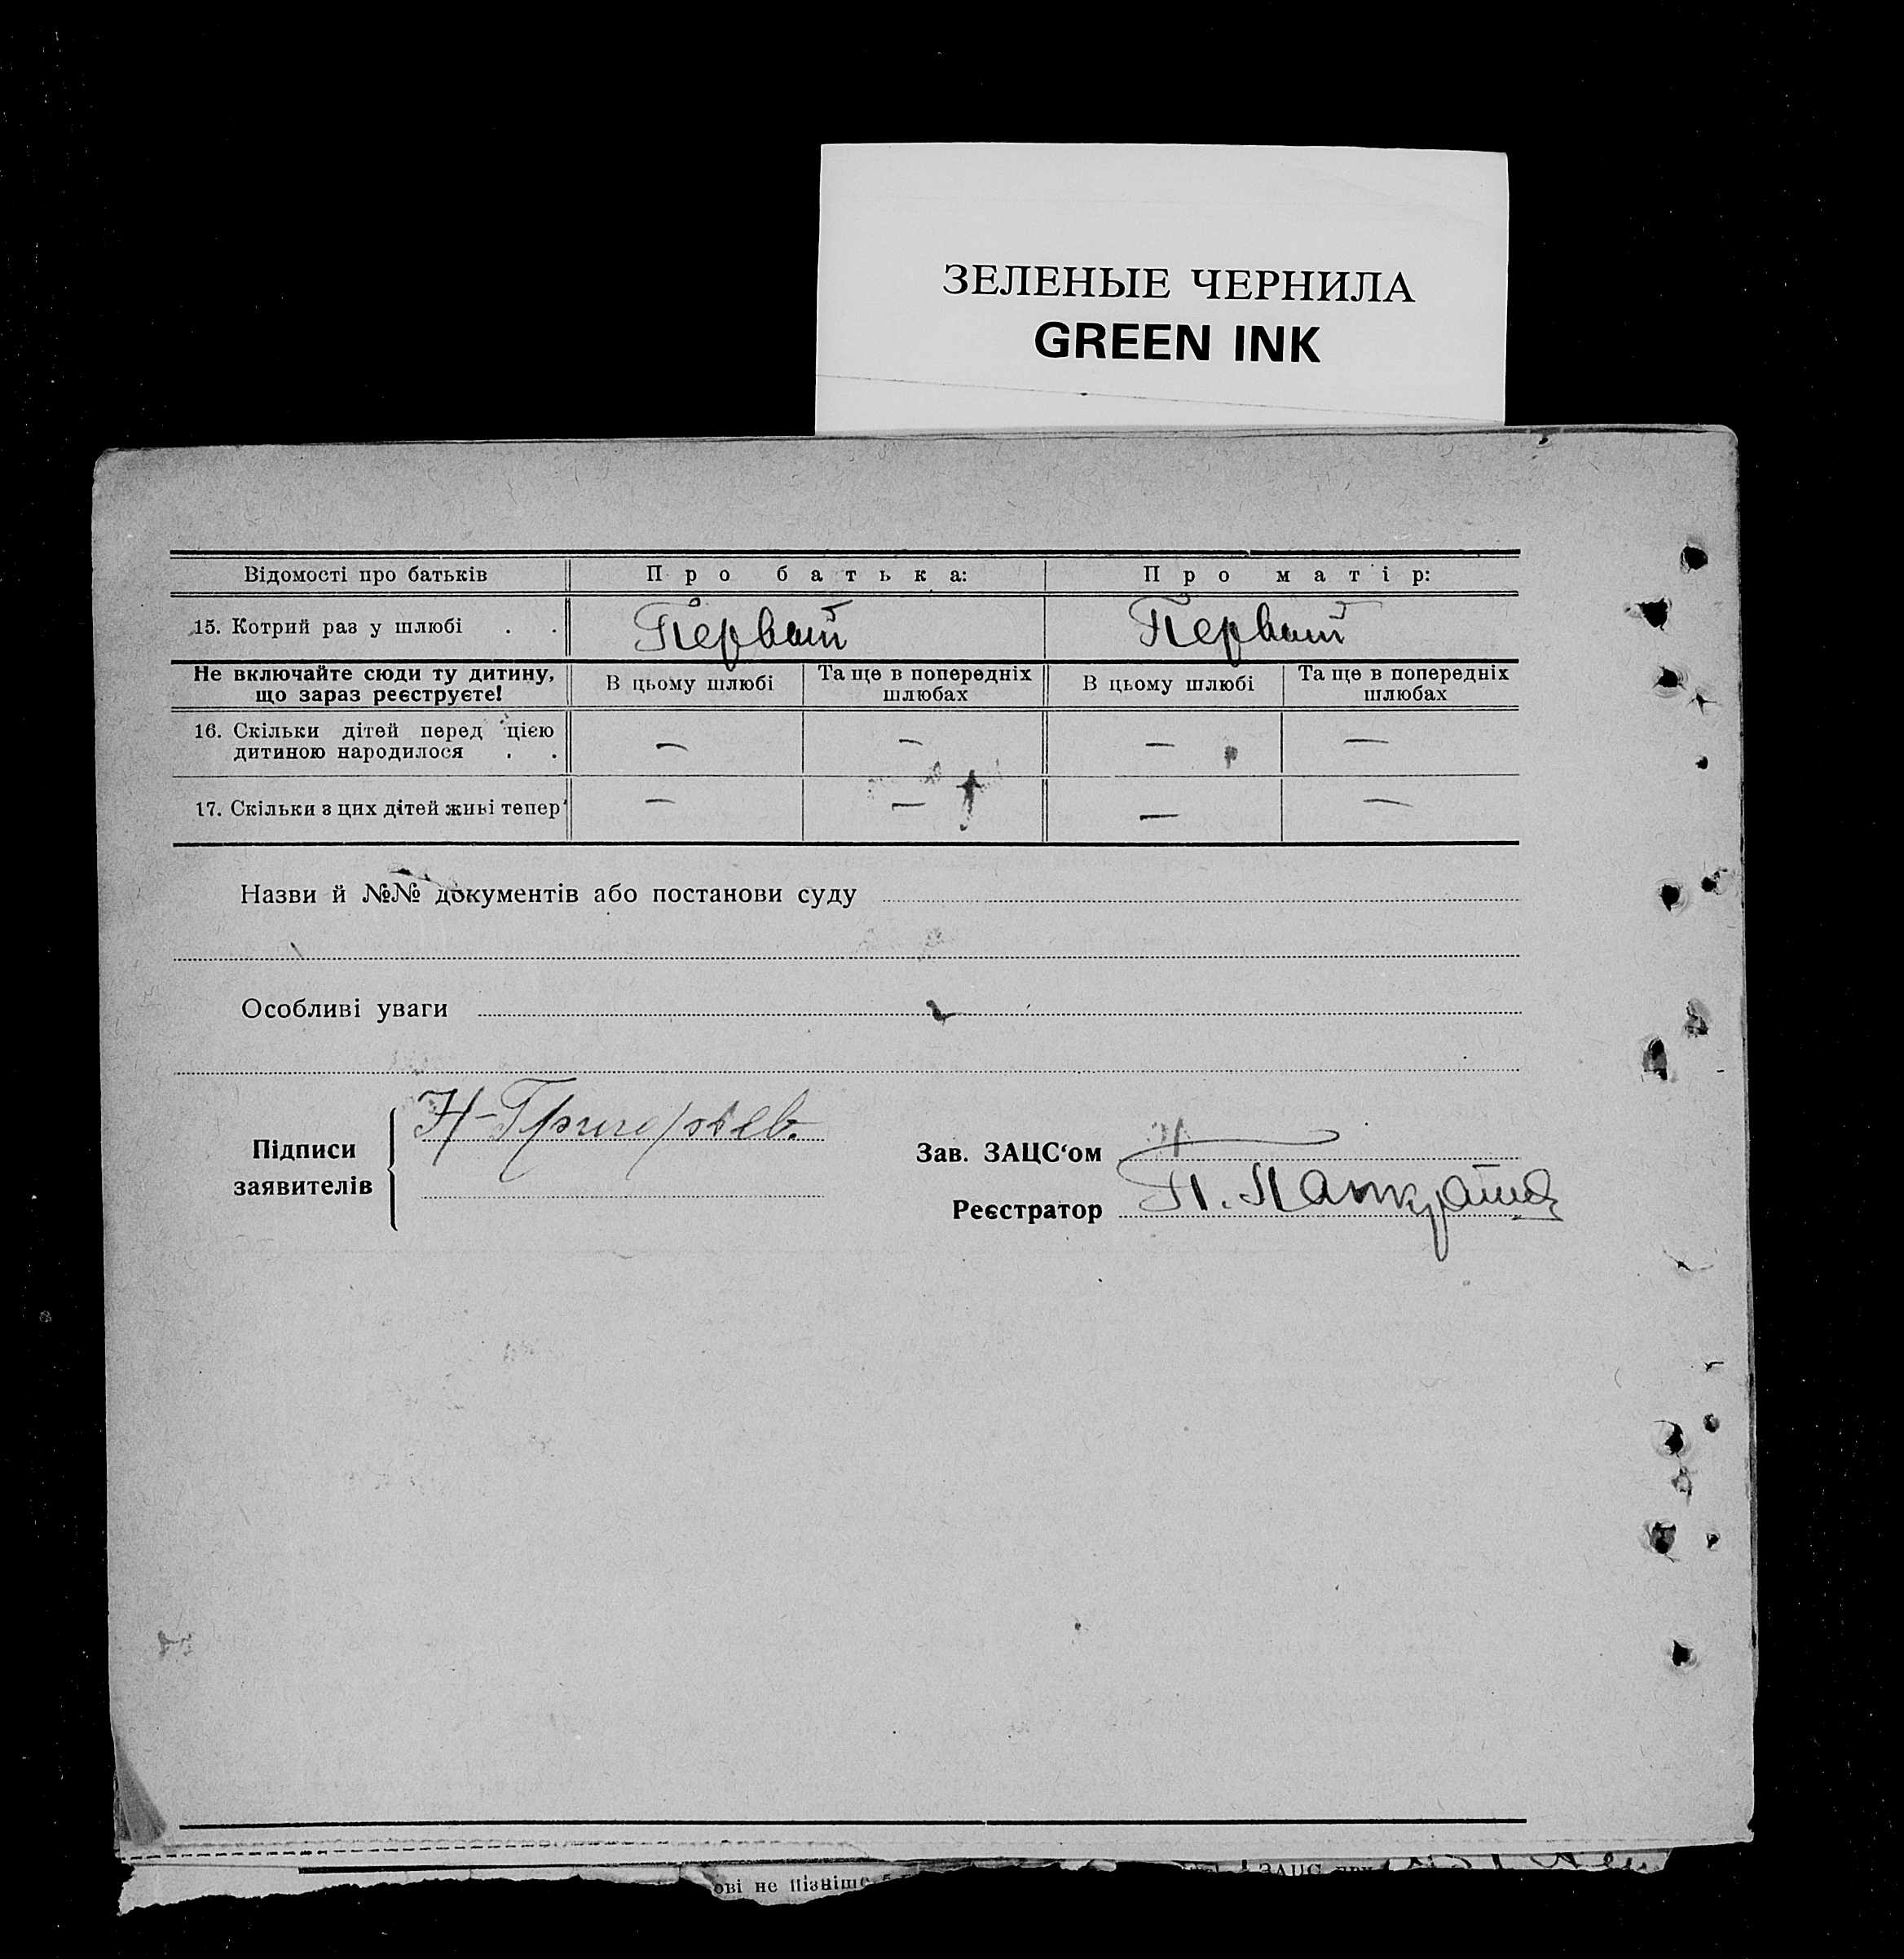 ЗЕЛЕНЫЕ ЧЕРНИЛА
GREEN INK
Відомості про батьків Про батька: Про матір:
15. Котрий раз у шлюбі . . Первый Первый
Не включайте сюди ту дитину, що зараз реєструєте! В цьому шлюбі Та ще в попередніх шлюбах В цьому шлюбі Та ще в попередніх шлюбах
16. Скільки дітей перед цією дитиною народилося . . — — — —
17. Скільки з цих дітей живі тепер — — — —
Назви й №№ документів або постанови суду
Особливі уваги
Підписи заявителів Н-Григорьев.
Зав. ЗАЦС‘ом
Реєстратор П.
ові не пізніше
ЗАЦС